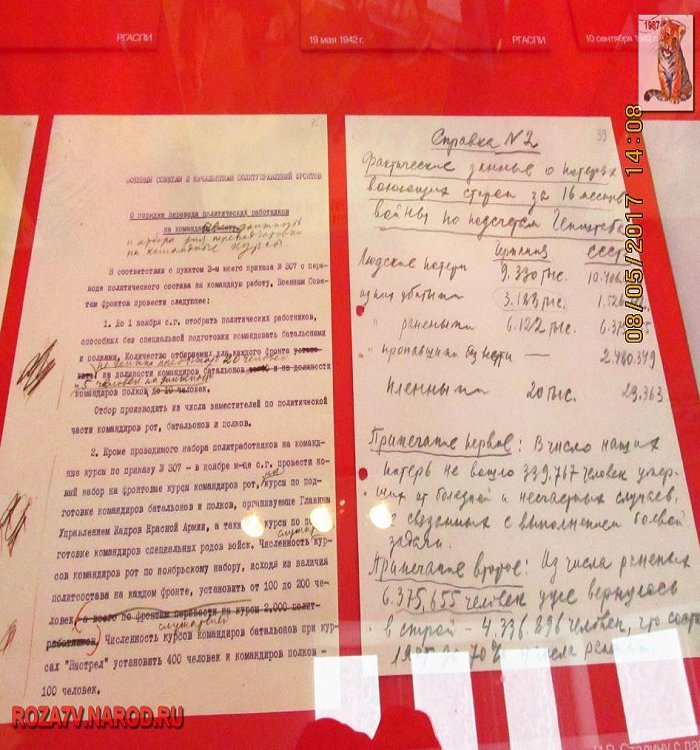 РГАСПИ
19 мая 1942 г.
РГАСПИ
10 сентября 1942
1987
08/05/2017 14:08
ВОЕННЫМ СОВЕТАМ И НАЧАЛЬНИКАМ ПОЛИТУПРАВЛЕНИЙ ФРОНТОВ
О порядке перевода политических работников
на команд
на командные курсы
В соответствии с пунктом 3-м моего приказа № 307 о пере-
воде политического состава на командную работу, Военным Сове-
там фронтов провести следующее:
1. До 1 ноября с.г. отобрать политических работников,
способных без специальной подготовки командовать батальонами
и полками. Количество отбираемых для каждого фронта
не должно превышать 20 человек
на должности командиров батальонов и на должности
и 5 человек на должности
командиров полков до 10 человек.
Отбор производить из числа заместителей по политической
части командиров рот, батальонов и полков.
2. Кроме проводимого набора политработников на команд-
ные курсы по приказу № 307 - в ноябре м-це с.г. провести но-
вый набор на фронтовые курсы командиров рот, на курсы по под-
готовке командиров батальонов и полков, организуемые Главным
Управлением Кадров Красной Армии, а также курсы по под-
готовке командиров специальных родов войск. Численность кур-
слушат
сов командиров рот по ноябрьскому набору, исходя из наличия
политсостава на каждом фронте, установить от 100 до 200 че-
ловек, а всего по фронтам перевести на курсы 2.000 полит-
слушателей
работников. Численность курсов командиров батальонов при кур-
сах "Выстрел" установить 400 человек и командиров полков -
100 человек.
39
Справка № 2
Фактические данные о потерях
воюющих сторон за 16 месяцев
войны по подсчетам Генштаба
Германия СССР
Людские потери 9.330 тыс.
из них убитыми 3.183 тыс.
ранеными 6.122 тыс.
" пропавшими без вести — 2.480.349
Пленными 20 тыс. 29.363
Примечание первое: В число наших
потерь не вошло 339.767 человек умер-
ших от болезней и несчастных случаев,
связанных с выполнением боевой
задачи.
Примечание второе: Из числа раненых
6.375.655 человек уже вернулось
в строй - 4.336.296 человек, что
числа раненых.
ROZATV.NAROD.RU
И.В. Сталину